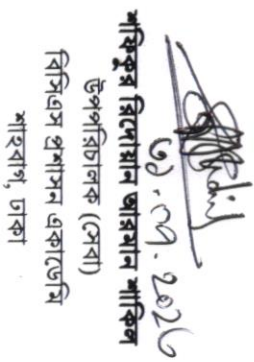 ৩১.০৭.২০২৩
শফিকুর রিদোয়ান আরমান শাকিল
উপপরিচালক (সেবা)
বিসিএস প্রশাসন একাডেমি
শাহবাগ, ঢাকা